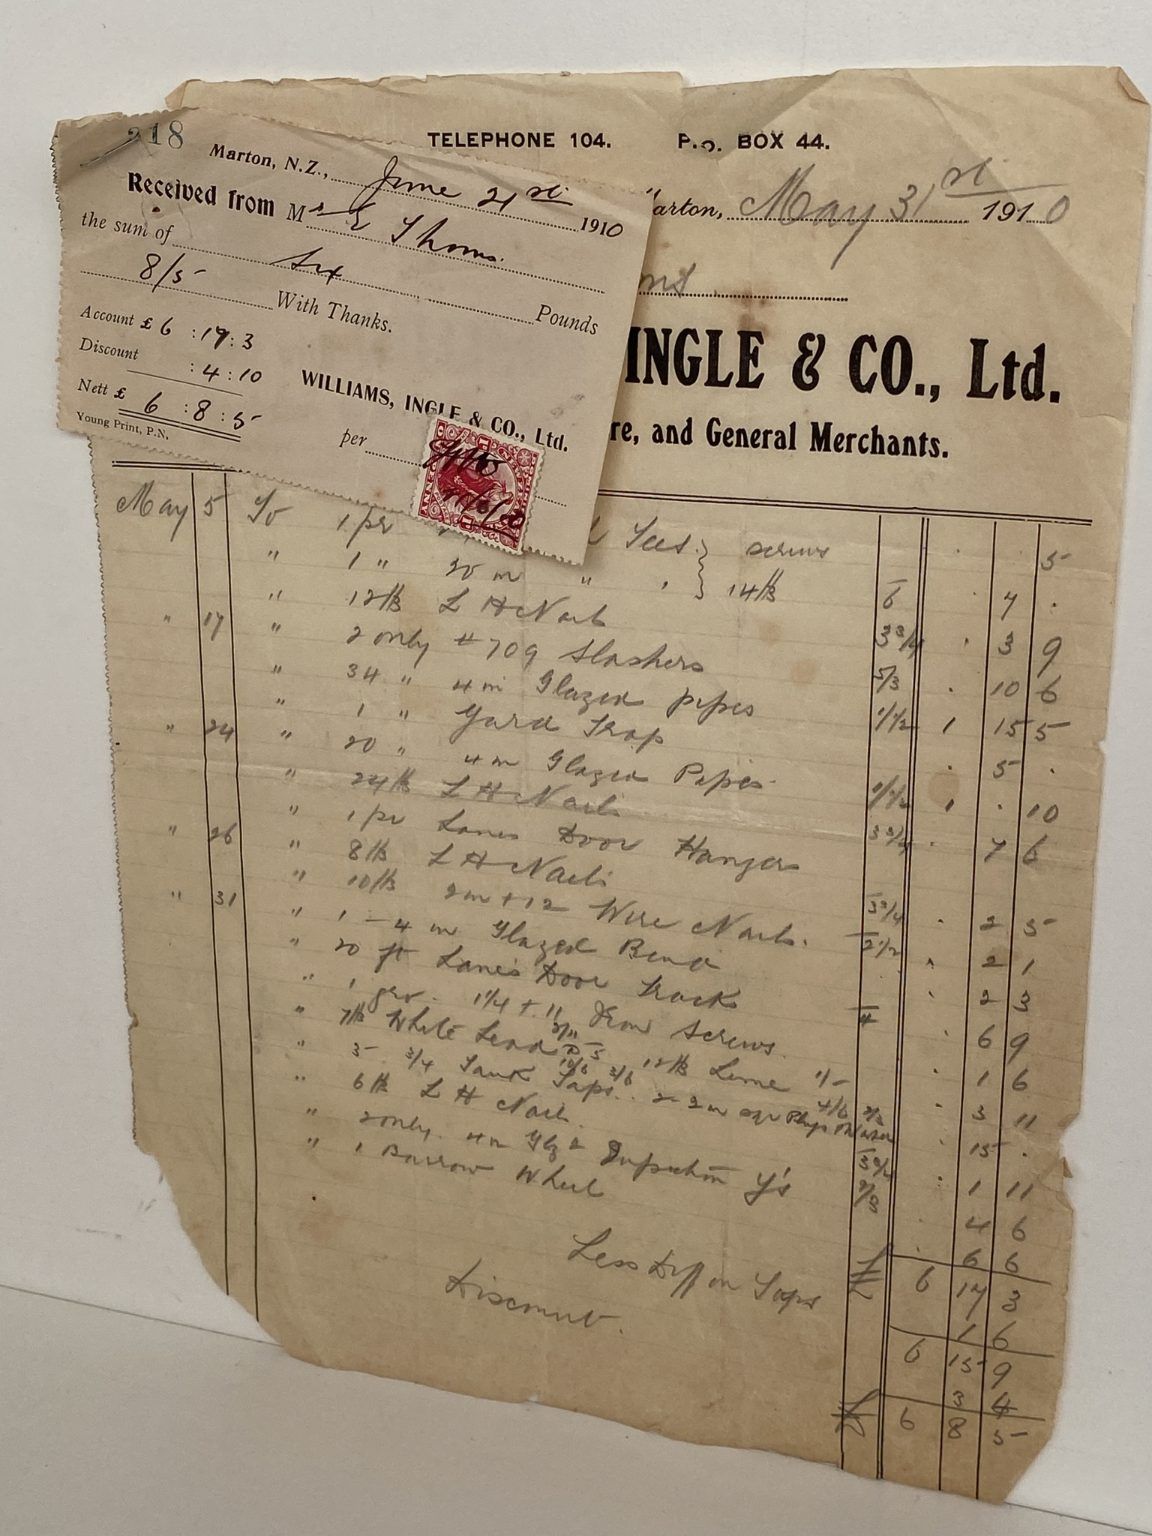 218
Marton, N.Z., June 21st 1910
Received from Mr E Thoms.
the sum of Six Pounds
8/5 With Thanks.
Account £ 6 : 17 : 3
Discount : 4 : 10
Nett £ 6 : 8 : 5
WILLIAMS, INGLE & CO., Ltd.
Young Print, P.N.
per
TELEPHONE 104. P.O. BOX 44.
arton, May 31st 1910
ms
INGLE & CO., Ltd.
re, and General Merchants.
May 5 To 1 pr Tees } screws 5
" 1 " 20 in " } 14 lb 6 7 .
" 12 lb L H Nails 3 3/4 3 9
" 17 " 2 only # 709 Slashers 5/3 10 6
" 34 " 4 in Glazed pipes 1/1/2 1 15 5
" 1 " Yard Trap 5 .
" 24 " 20 " 4 in Glazed Pipes 1/1/2 1 . 10
" 24 lb L H Nails 3 3/4 7 6
" 1 pr Lanes Door Hangers
" 26 " 8 lb L H Nails 3 3/4 2 5
" 10 lb 2 in + 12 Wire Nails. 2 1/2 2 1
" 31 " 1 - 4 in Glazed Bend 2 3
" 20 ft Lanes Door Track 4 6 9
" 1 gro. 1 1/4 + 11 Iron Screws 1 6
" 7 lb White Lead 12 lb Lime 1/- 3 11
" 5 3/4 Tank Taps 15 .
" 6 lb L H Nails 1 11
" 2 only 4 in Glzd Inspection Y's 4 6
" 1 Barrow Wheel 6 6
6 17 3
Less Diff on Taps 1 6
6 15 9
Discount. 3 4
6 8 5